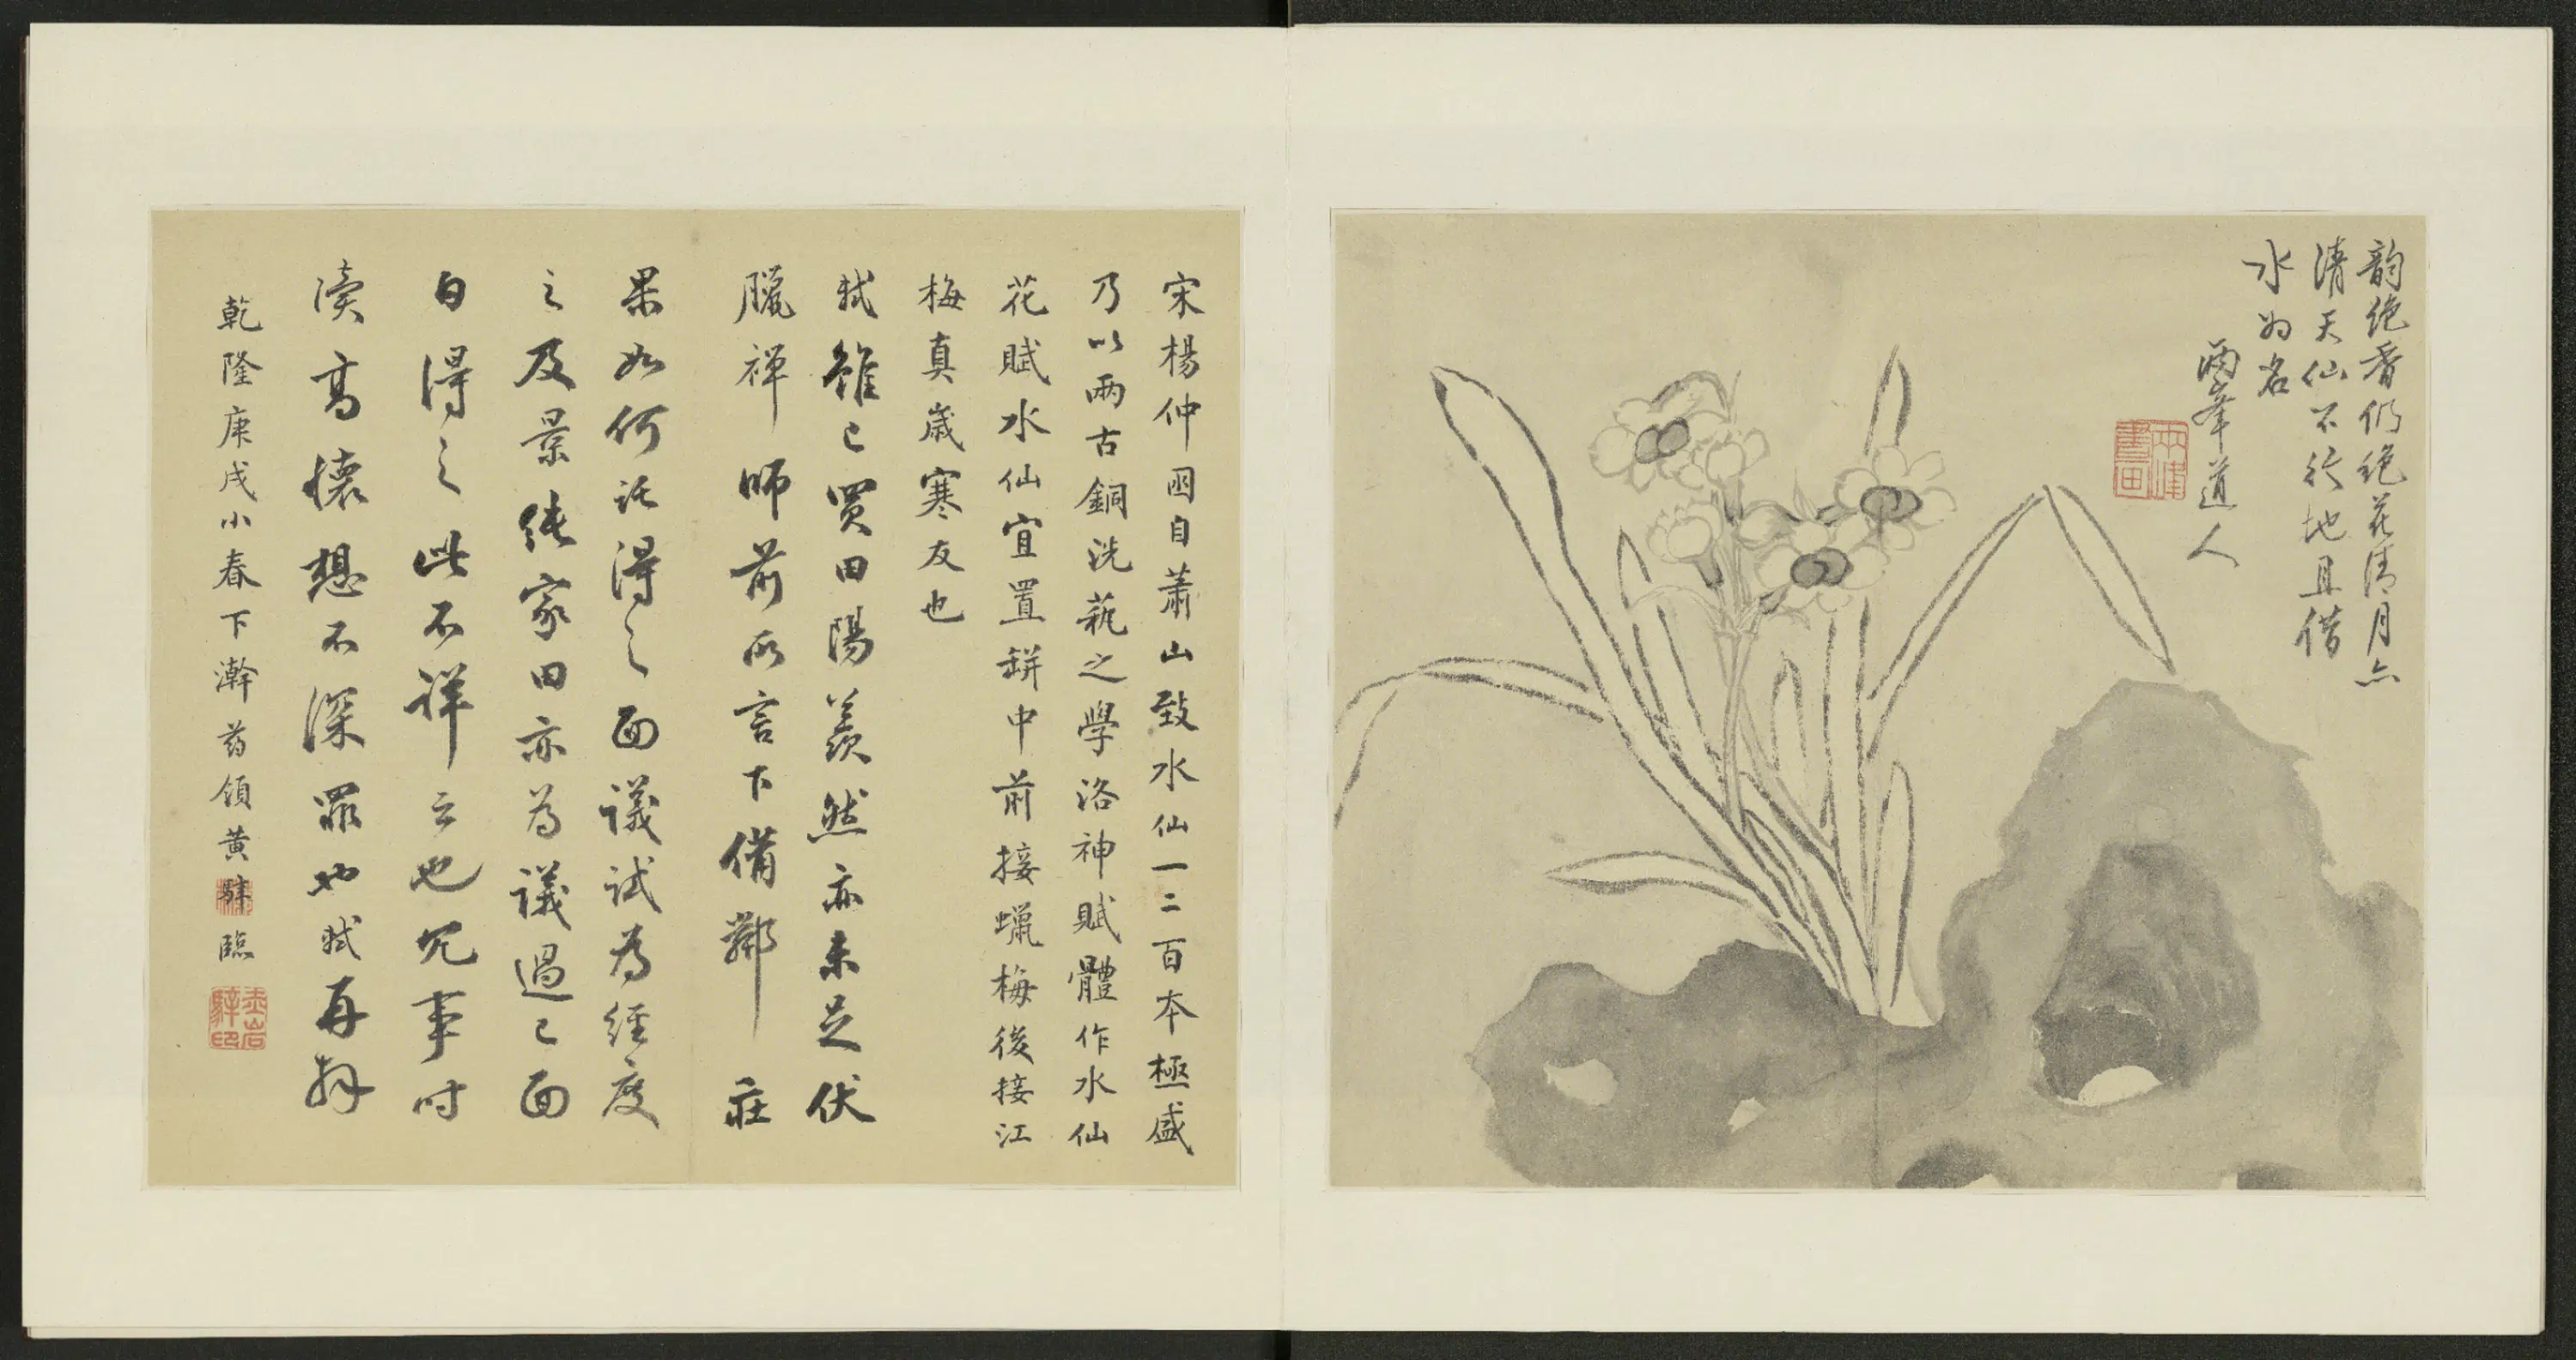 韵絶香仍絶花清月亦
清天仙不行地且借
水为名
兩峯道人
兩峰書画
宋楊仲囦自蕭山致水仙一二百本極盛
乃以兩古銅洗蓺之學洛神賦體作水仙
花賦水仙宜置缾中前接蠟梅後接江
梅真歲寒友也
軾雖已買田陽羨然亦未足伏
臘禪師前所言下備鄰莊
果如何託得之面議試為經度
之及景純家田亦為議過已面
白得之此不詳云也冗事時
瀆高懷想不深罪也軾再拜
乾隆庚戌小春下澣葯領黃騂臨